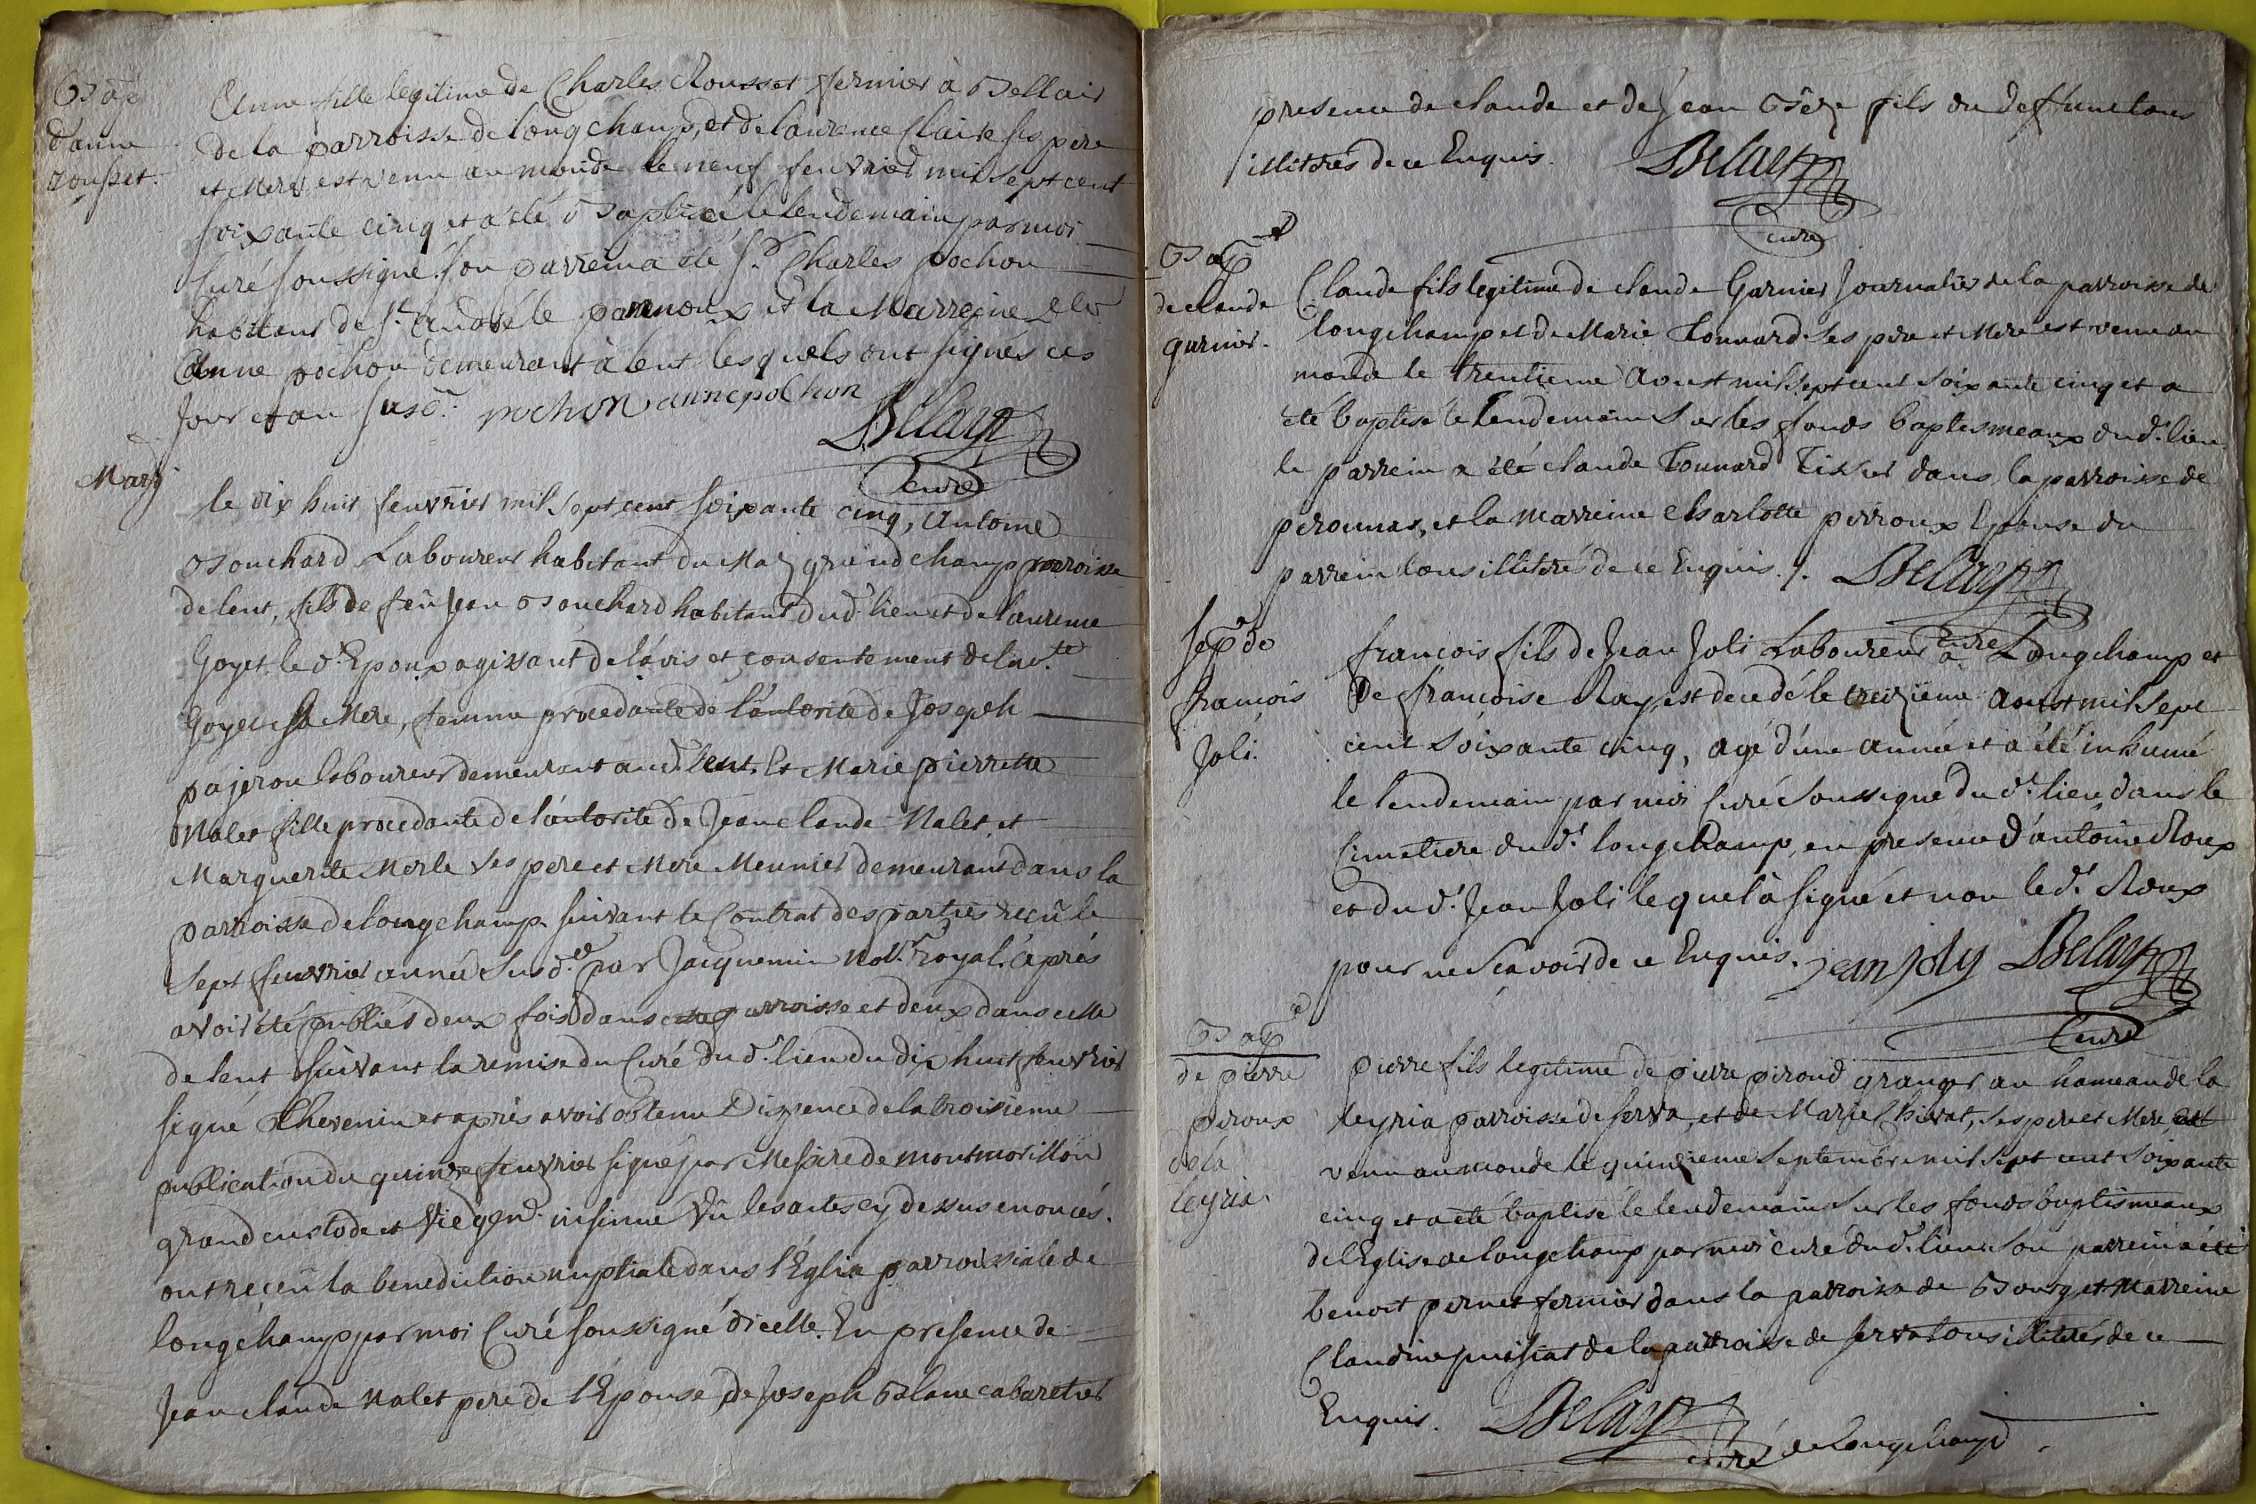 Bap.e
d'anne
rousset.
Anne fille legitime de Charles Rousset fermier à Bellair
de la parroisse de longchamp, et de laurence Claire ses pere
et Mere est venu au monde le neuf feuvrier mil sept cent
soixante cinq et a été Baptisée le lendemain par moi
Curé soussigné son parrein a été s.r Charles pochon
habitant de s.t André le pannoux et la Marreine
Anne pochon demeurant à lent lesquels ont signés ces
jour et an susd. pochon anne pochon
Delaye
curé
Mar.
le dix huit feuvrier mil sept cent soixante cinq, Antoine
Bouchard Laboureur habitant du Ma grand champ parroisse
de lent, fils de feu jean Bouchard habitant dud. lieu et de laurence
Goyet le d. Epoux agissant de l'avis et consentement de lad.te
Goyet sa Mere, femme procedante de l'autorité de Joseph
pajeron laboureur demeurant aud. lent. Et Marie pierrette
Nalet fille procedante de l'autorité de Jean claude Nalet et
Marguerite Merle ses pere et Mere Meunier demeurant dans la
parroisse de longchamp suivant le Contrat des parties reçû le
sept feuvrier année susd.e par Jacquemin Not. royal. après
avoir été publiés deux fois dans cette parroisse et deux dans celle
de lent suivant la remise du Curé dud. lieu du dix huit feuvrier
signé Chevenin et après avoir obtenu Dispence de la troisieme
publication du quinze feuvrier signé par Messire de montmorillon
grand custode et Vic gen. insinué Vû les actes cy dessus enoncés.
ont reçeu la benediction nuptiale dans l'Eglise parroissiale de
longchamp par moi Curé soussigné d'icelle. En presence de
Jean claude Nalet pere de l'Epouse de Joseph Blanc cabaretier
presence de claude et de Jean fils du deffunct tous
illitérés de ce Enquis. Delaye
curé
Bap.e
de claude
garnier.
Claude fils legitime de claude Garnier Journalier de la parroisse de
longchamp et de Marie Tonnard ses pere et Mere est venu au
monde le trentieme Aoust mil sept cent soixante cinq et a
été baptisé le lendemain sur les fonds baptesmeaux dud. lieu
le parrein a été claude Tonnard Tissier dans la parroisse de
peronnas, et la marreine charlotte perroux Epouse du
parrein tous illiterés de ce Enquis. Delaye
curé
sep. de
françois
Joli.
françois fils de Jean Joli Laboureur à Longchamp et
de françoise Ray est decedé le treizieme Aoust mil sept
cent soixante cinq, agé d'une année et a été inhumé
le lendemain par moi Curé soussigné du d. lieu dans le
Cimetiere dud. longchamp, en presence d'antoine Roux
et dud. Jean Joli lequel à signé et non le d. Roux
pour ne sçavoir de ce Enquis. jean joly Delaye
curé
Bap.e
de pierre
piroux
de la
leyria.
pierre fils legitime de pierre piroud granger au hameau de la
leyria parroisse de serva, et de Marie Chivat, ses pere et Mere, est
venu au monde le quinzieme septembre mil sept cent soixante
cinq et a été baptisé le lendemain sur les fonds baptismeaux
de l'Eglise de longchamp par moi curé dud. lieu. son parrein a été
benoit pernet fermier dans la parroisse de Bourg et Marreine
Claudine puissat de la parroisse de serva tous illiterés de ce
Enquis. Delaye
curé de Longchamp